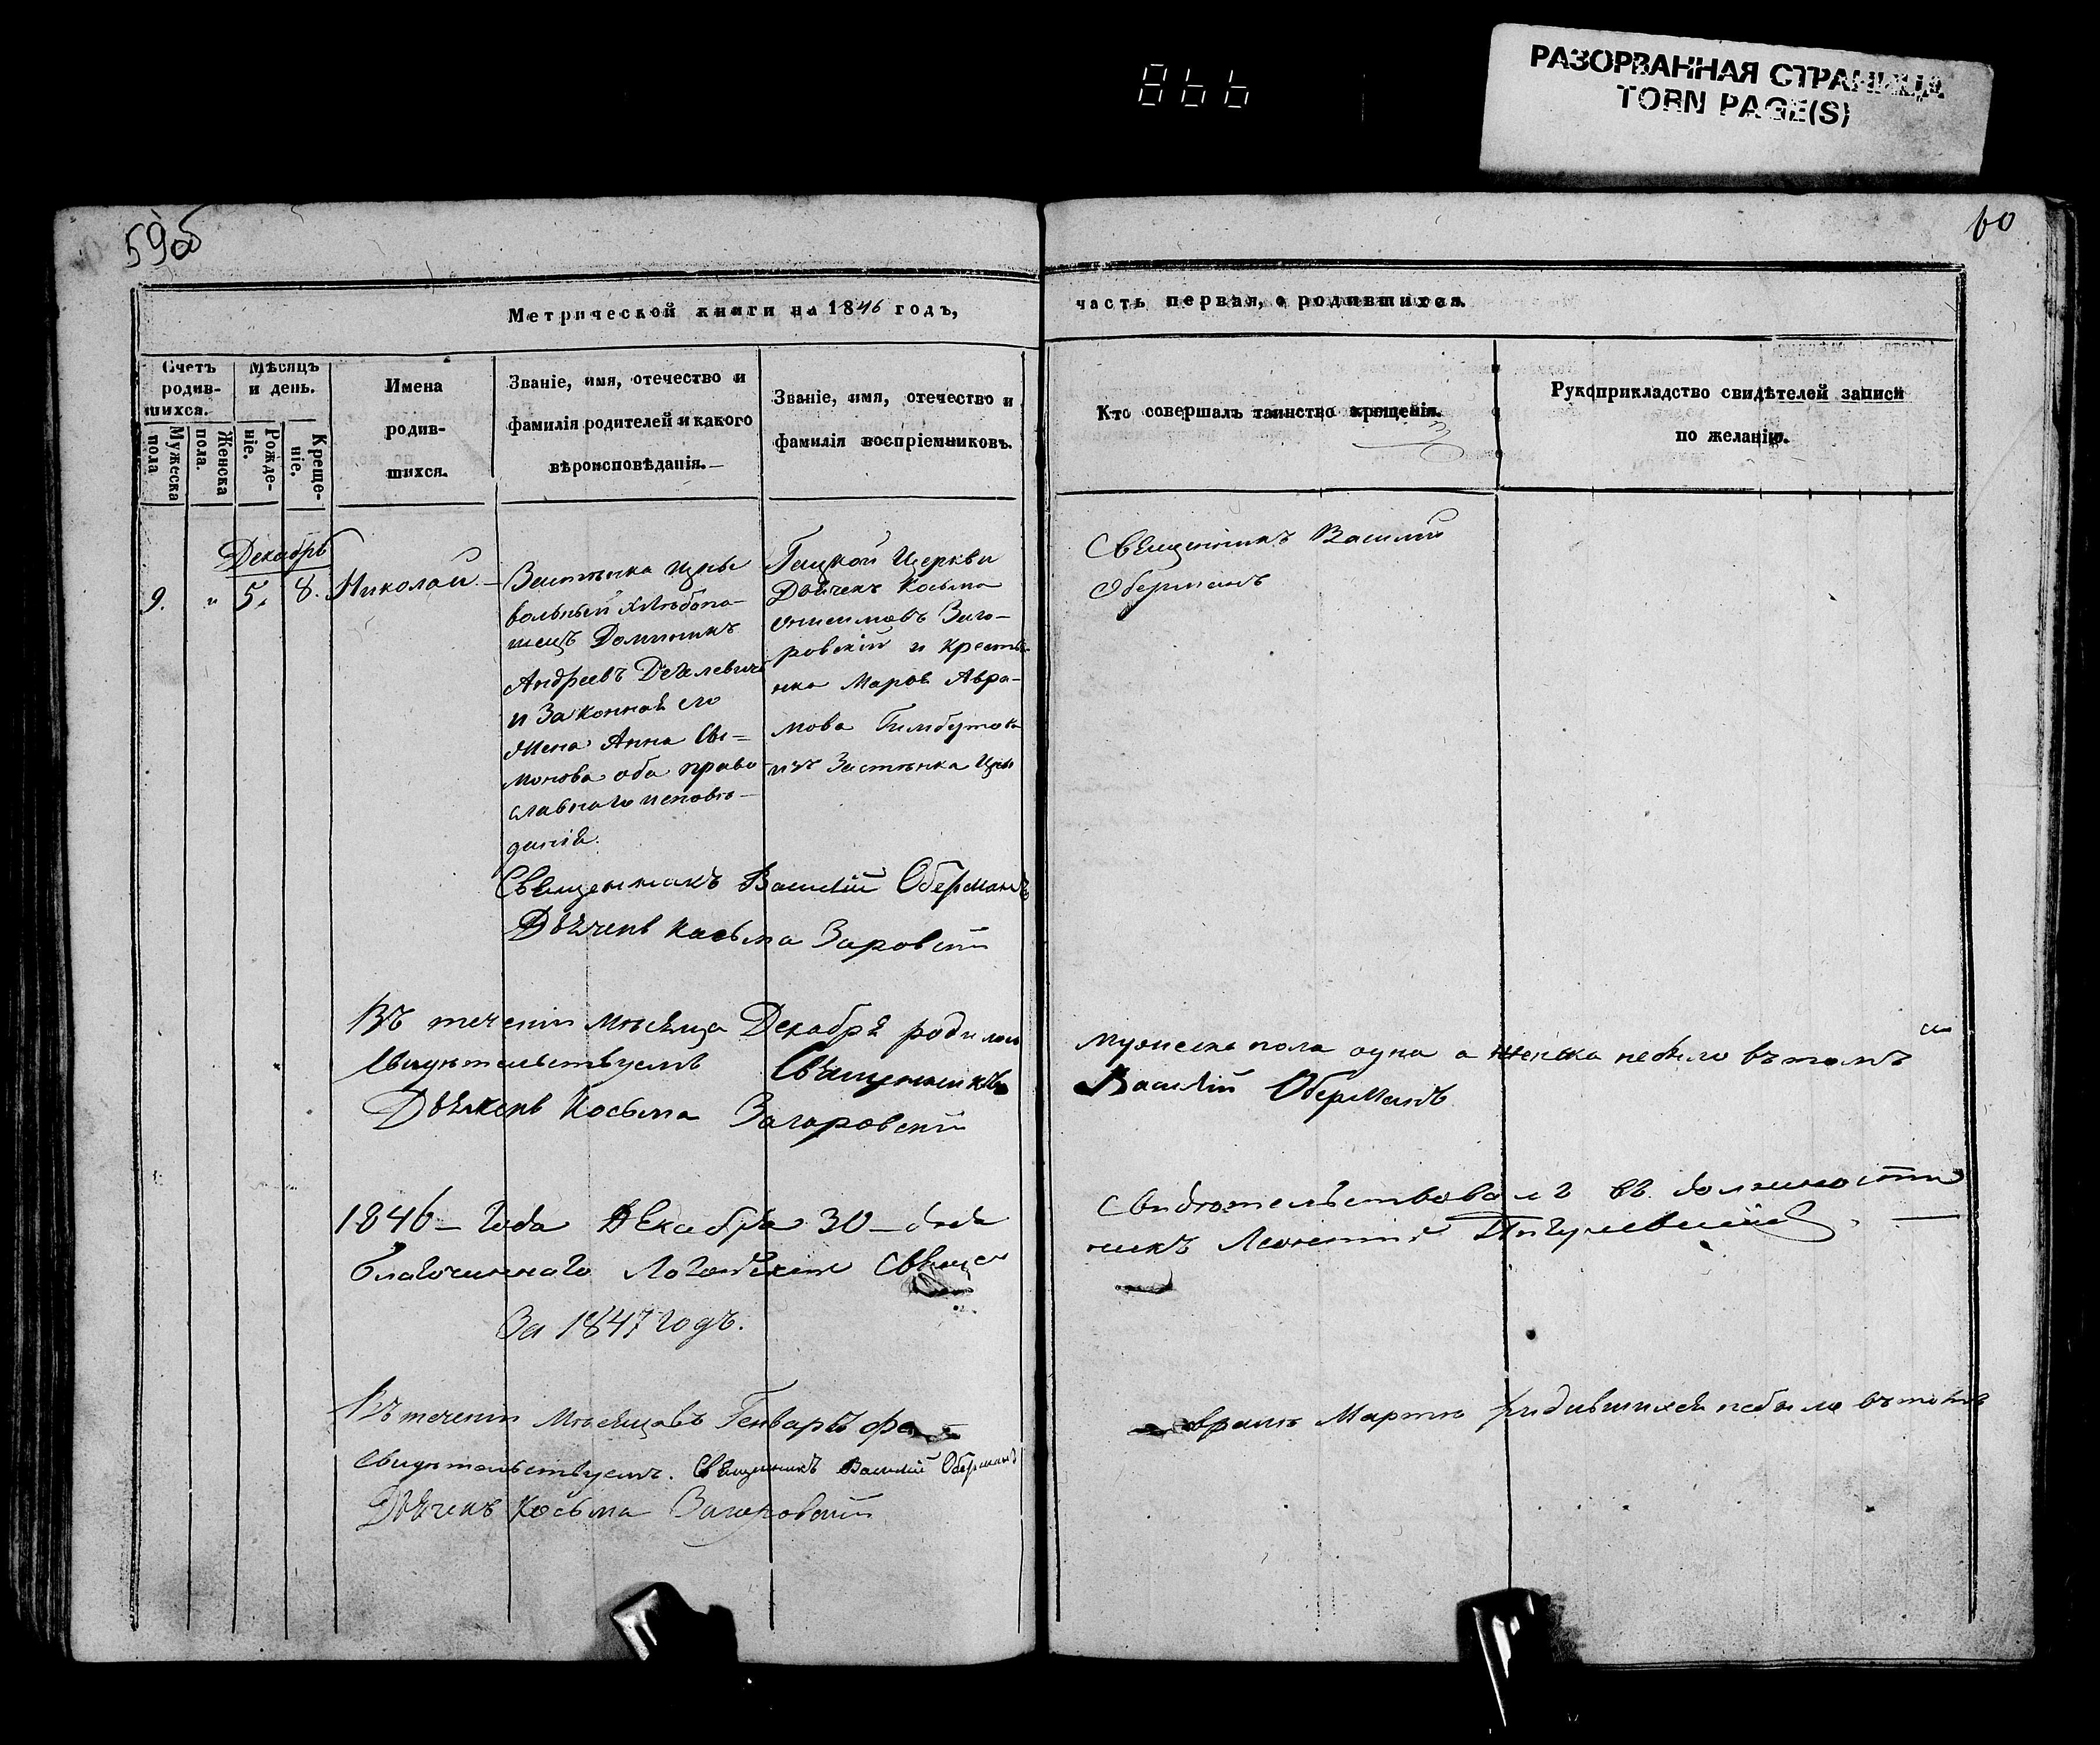 866
РАЗОРВАННАЯ СТРАНИЦА
TORN PAGE(S)
59об
60
Метрической книги на 1846 годъ,
часть первая, о родившихся.
Счетъ родив-шихся.
Мѣсяцъ и день.
Мужеска пола
Женска пола.
Рожде-ніе.
Креще-ніе.
Имена
родив-
шихся.
Званіе, имя, отечество и
фамилія родителей и какого
вѣроисповѣданія.
Званіе, имя, отечество и
фамилія воспріемниковъ.
Кто совершалъ таинство крещенія.
Рукоприкладство свидѣтелей записи
по желанію.
Декабрь
9. " 5. 8. Николай
Застѣнка Цны
вольный хлѣбопа-
шецъ Доминикъ
Андреевъ
и Законная его
жена Анна Си-
монова оба право
славнаго исповѣ-
данія.
Гацкой Церкви
Дьячекъ Косьма
Онисимовъ Заго-
ровскій и кресть
нка Авра-
мова
изъ Застѣнка Цны
Священникъ Василій
Оберманъ
Священникъ Василій Оберманъ
Дьячекъ Косьма
Въ теченіи мѣсяца Декабря родилось
мужеска пола одна а женска небыло въ томъ
Свидѣтельствуемъ Священникъ
Василій Оберманъ
Дьячекъ Косьма Загоровскій
1846 – Года Декабря 30 – дня
свидѣтельствовалъ въ должности
благочиннаго Логойскаго Свяще
никъ Леонтій
За 1847 годъ.
Въ теченіи Мѣсяцовъ Генваря фе
враля Марта родившихся небыло въ томъ
Свидѣтельствуемъ. Священникъ Василій Оберманъ
Дьячекъ Косьма Загоровскій